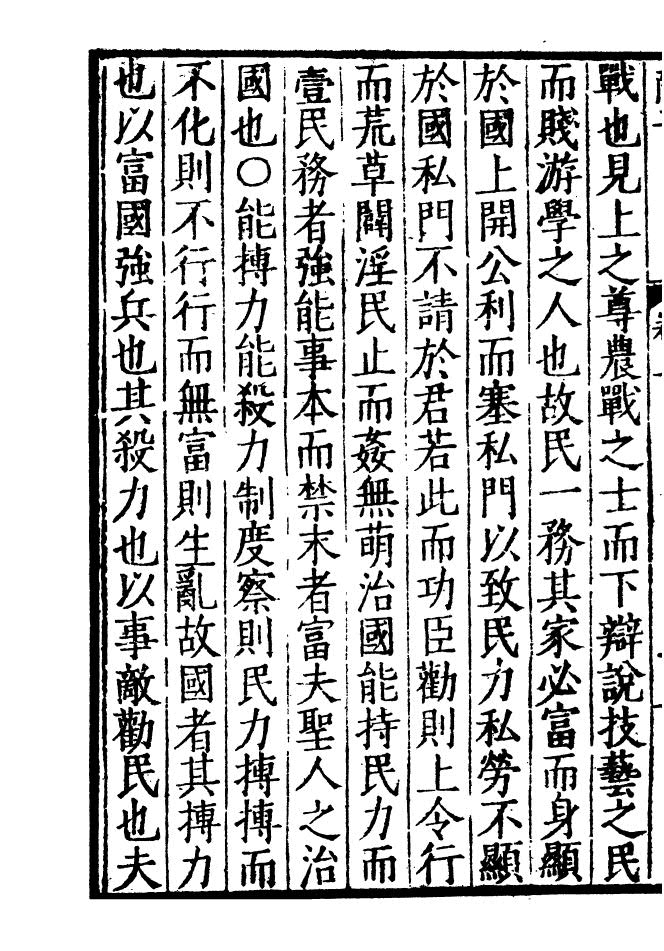 戰也見上之尊農戰之士而下辯說技藝之民
而賤游學之人也故民一務其家必富而身顯
於國上開公利而塞私門以致民力私勞不顯
於國私門不請於君若此而功臣勸則上令行
而荒草闢淫民止而姦無萌治國能持民力而
壹民務者強能事本而禁末者富夫聖人之治
國也〇能摶力能殺力制度察則民力摶摶而
不化則不行行而無富則生亂故國者其摶力
也以富國強兵也其殺力也以事敵勸民也夫